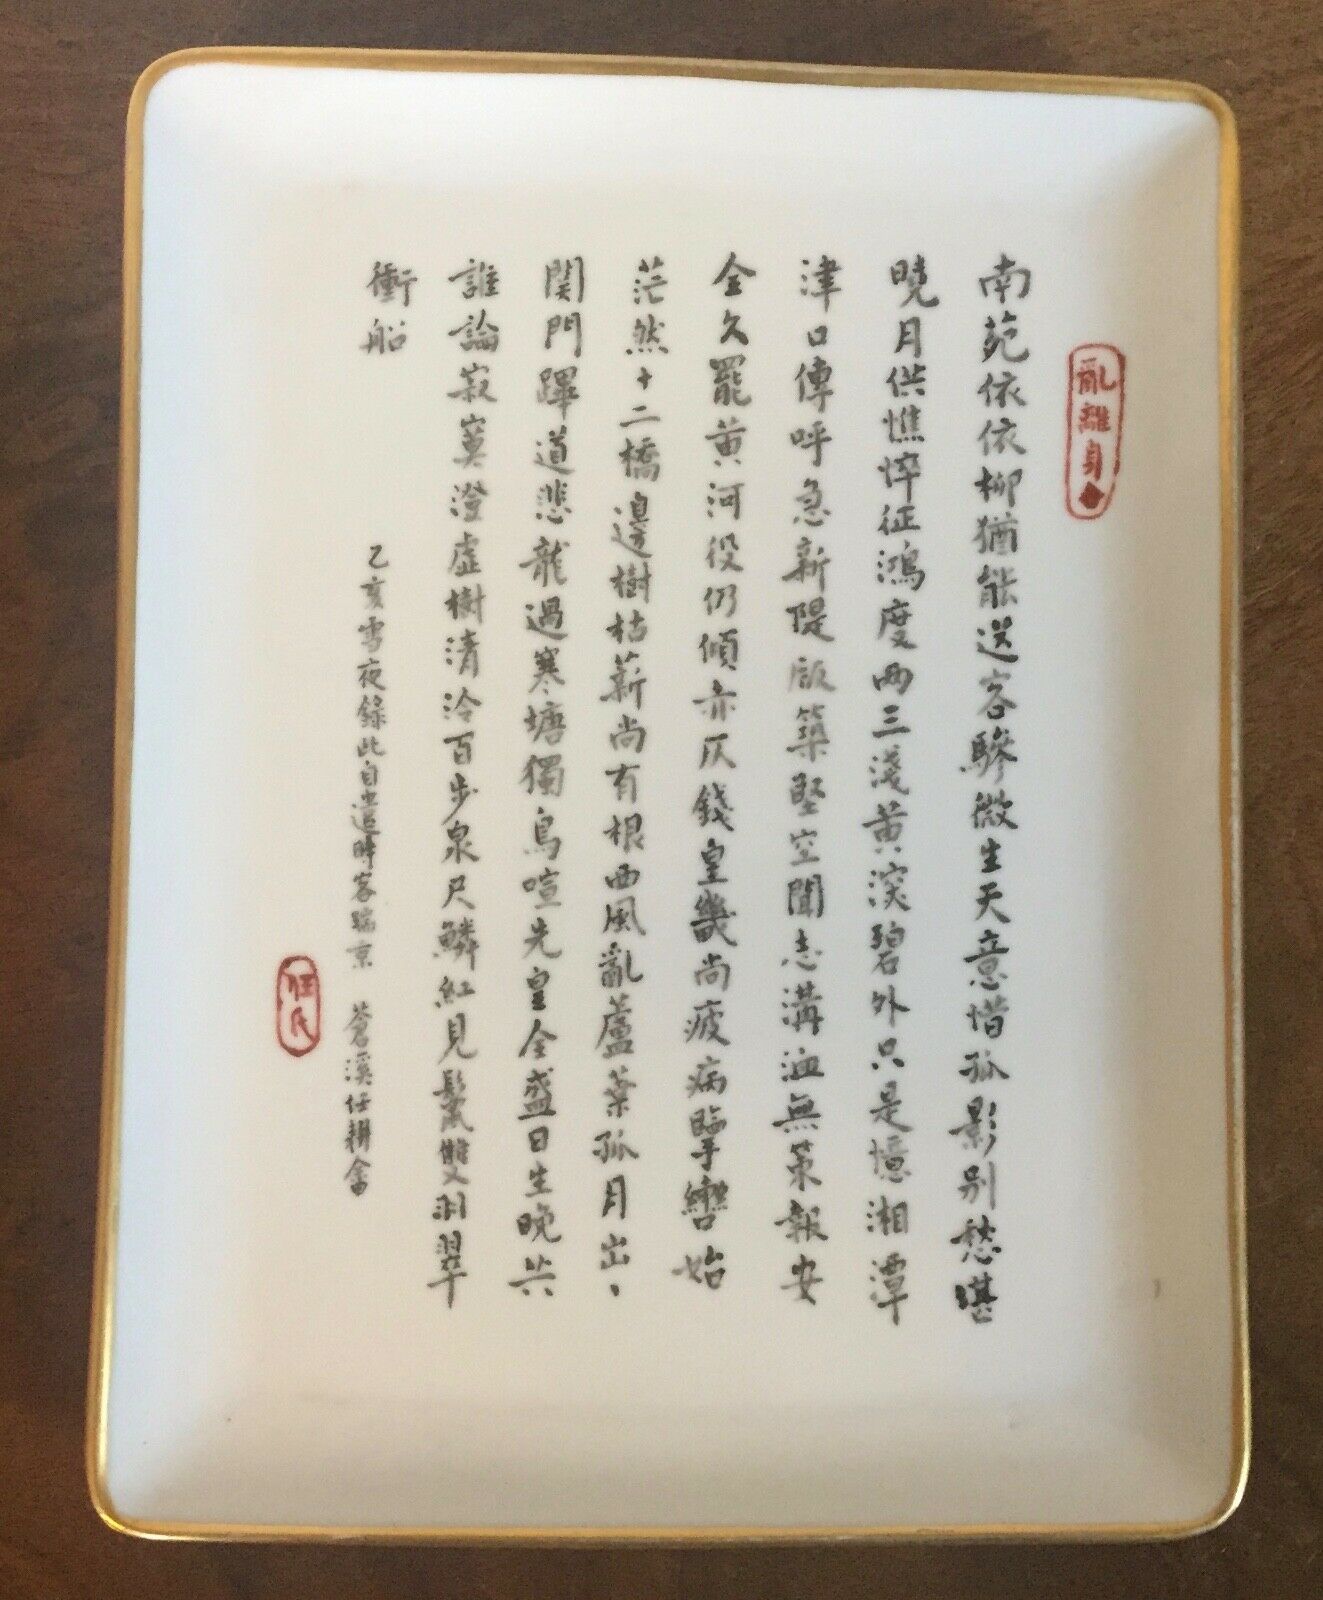 亂離身
南苑依依柳猶能送客驂微生天意惜孤影別愁堪
曉月供憔悴征鴻度兩三淺黃深碧外只是憶湘潭
津口傳呼急新隄版築堅空聞志溝洫無策報安
全久罷黃河役仍傾赤仄錢皇畿尚疲病臨掌轡始
茫然十二橋邊樹枯薪尚有根西風亂蘆葉孤月出、
関門蹕道悲龍過寒塘獨鳥喧先皇全盛日生晚共
誰論寂寞澄虛樹清泠百步泉尺鱗紅見鬣雙羽翠
衝船
乙亥雪夜錄此自遣時客瑞京 蒼溪任耕畬
任氏